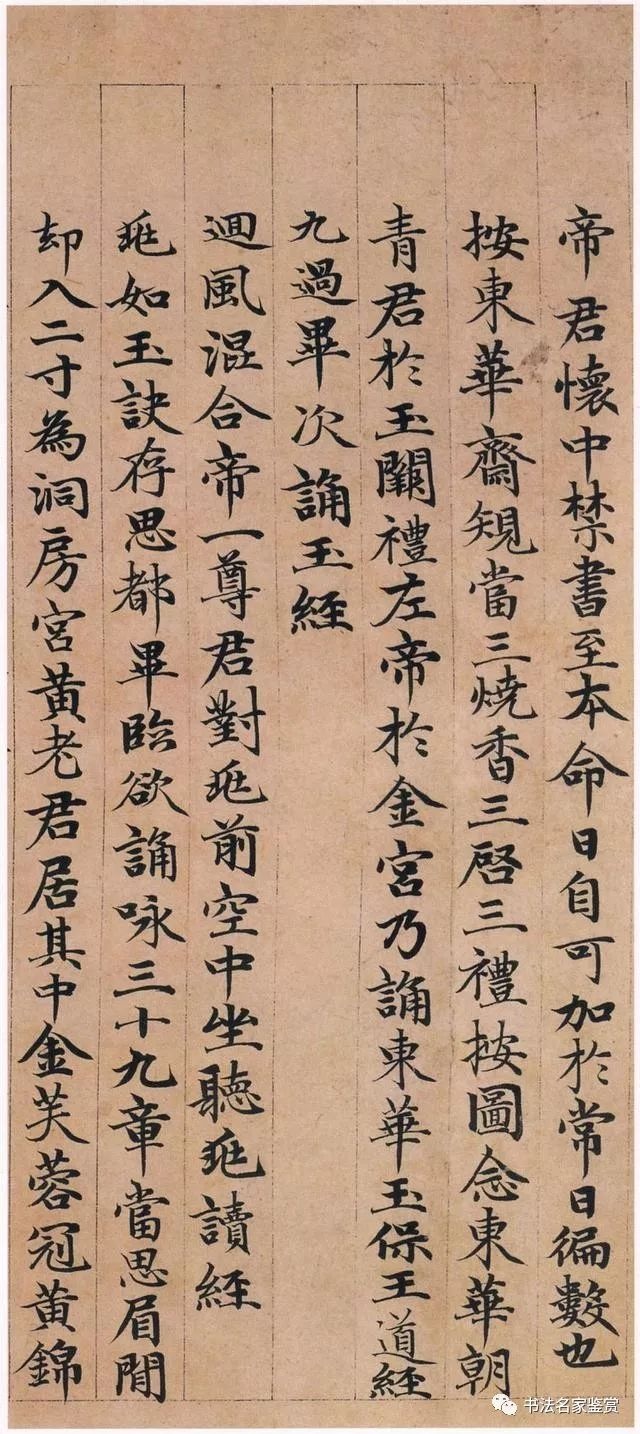 帝君懷中禁書至本命日自可加於常日徧數也
按東華齋䂓當三燒香三啓三禮按圖念東華朝
青君於玉闕禮左帝於金宮乃誦東華玉保王道經
九過畢次誦玉經
迴風混合帝一尊君對兆前空中坐聽兆讀經
兆如玉訣存思都畢臨欲誦咏三十九章當思眉閒
却入二寸為洞房宮黃老君居其中金芙蓉冠黃錦
书法名家鉴赏